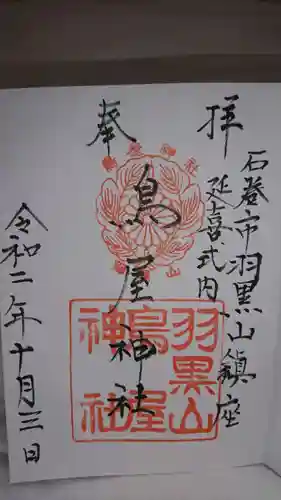 奉拝
石巻市羽黒山鎮座
延喜式内
鳥屋神社
令和二年十月三日
羽黒山
鳥屋
神社